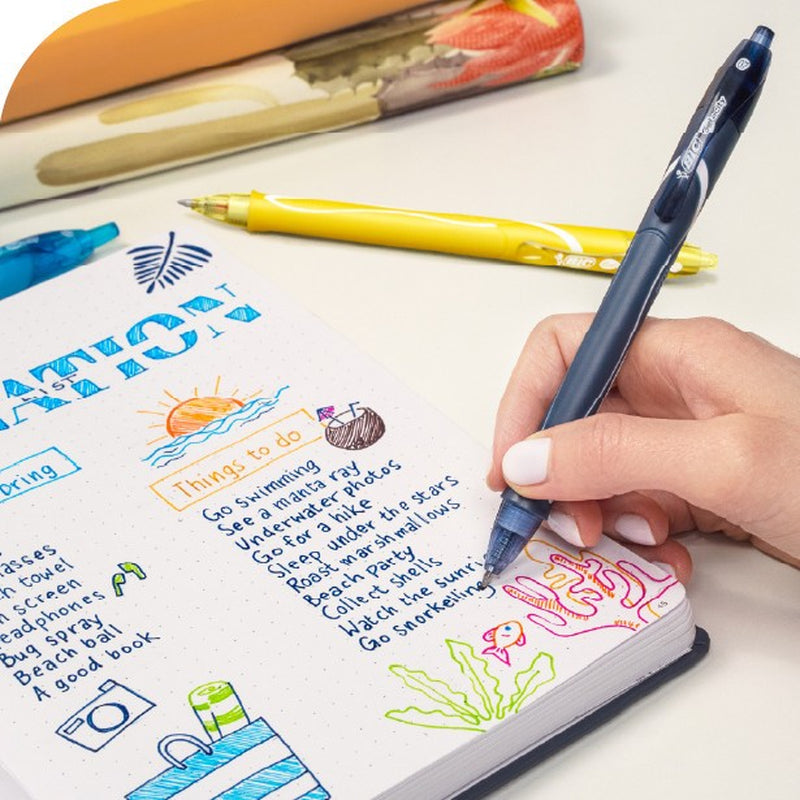 LIST
Things to do
Go swimming
See a manta ray
Underwater photos
Go for a hike
Sleep under the stars
Roast marshmallows
Beach Party
Collect shells
Watch the sunri
Go snorkeling
towel
screen
Bug spray
Beach ball
A good book
BIC
BIC
07
45